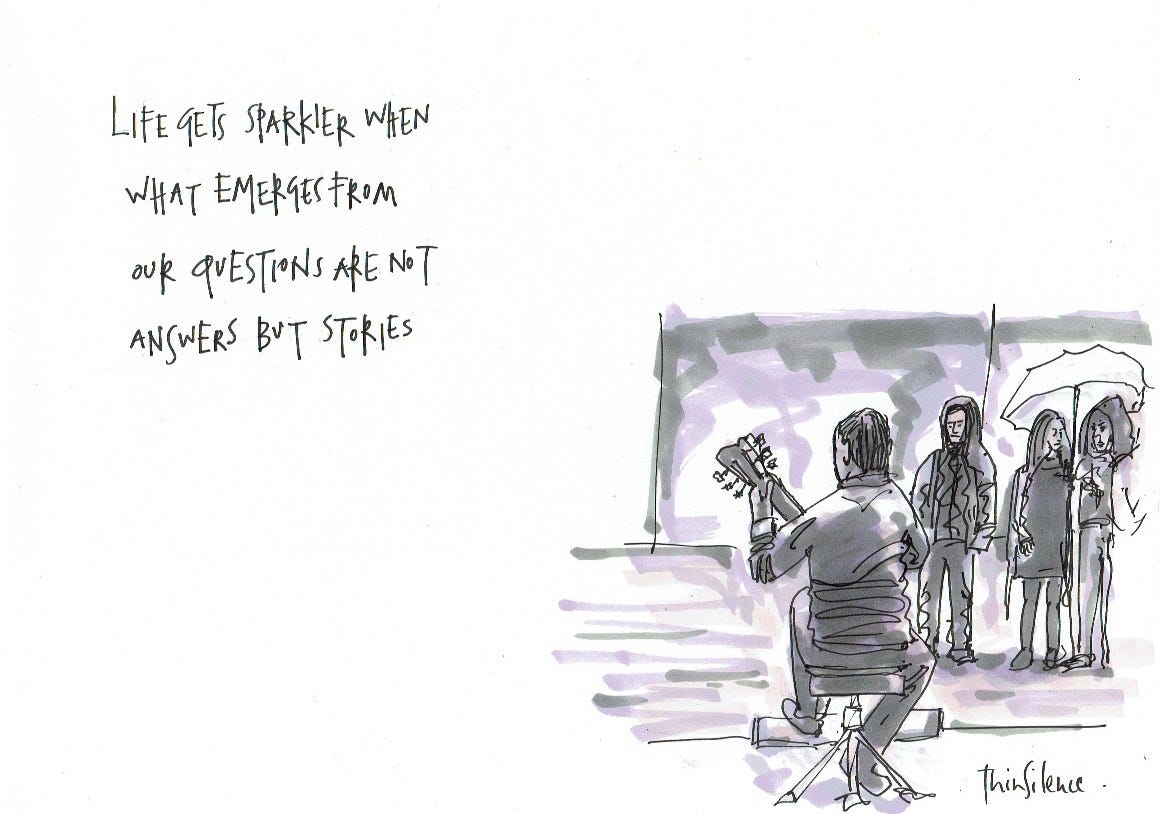 LIFE GETS SPARKIER WHEN
WHAT EMERGES FROM
OUR QUESTIONS ARE NOT
ANSWERS BUT STORIES
thinSilence.